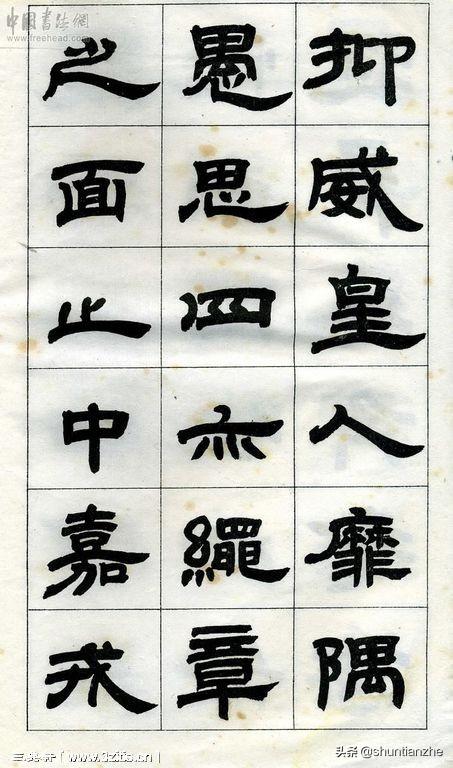 中国书法網
www.freehead.com
抑威皇人靡隅
愚思四亦繩章
之面止中嘉戎
www.3zitie.cn
头条@shuntianzhe